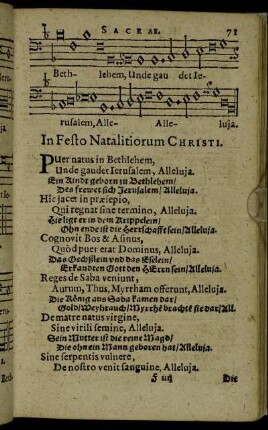 SACRAE. 71
Beth- lehem, Unde gau det Ie-
rusalem, Alle- Alle- luja.
In Festo Natalitiorum CHRISTI.
PUer natus in Bethlehem,
Unde gaudet Ierusalem, Alleluja.
Ein Kindt geborn zu Bethlehem/
Des frewet sich Jerusalem/ Alleluja.
Hic jacet in præsepio,
Qui regnat sine termino, Alleluja.
Hie ligt er in dem Krippelein/
Ohn ende ist die Herrschafft sein/ Alleluja.
Cognovit Bos & Asinus,
Quòd puer erat Dominus, Alleluja.
Das Oechßlein und das Eselein/
Erkandten Gott den HErrn sein/ Alleluja.
Reges de Saba veniunt,
Aurum, Thus, Myrrham offerunt, Alleluja.
Die König aus Saba kamen dar/
Gold/ Weyrauch/ Myrrhe brachtē sie dar/ All.
De matre natus virgine,
Sine virili semine, Alleluja.
Sein Mutter ist die reine Magd/
Die ohn ein Mann geboren hat/ Alleluja.
Sine serpentis vulnere,
De nostro venit sanguine, Alleluja.
Die